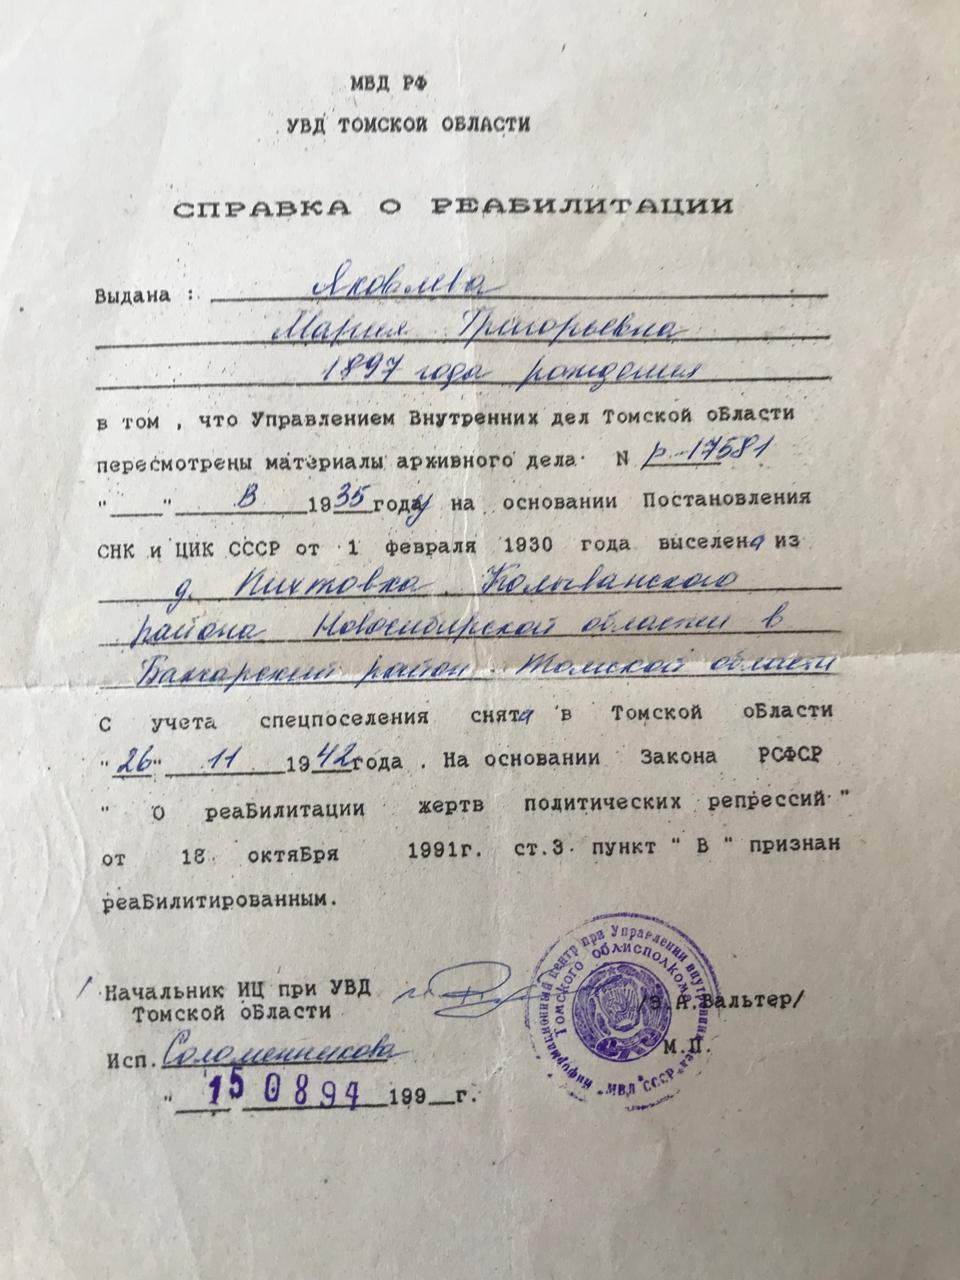 МВД РФ
УВД ТОМСКОЙ ОБЛАСТИ
СПРАВКА О РЕАБИЛИТАЦИИ
Выдана : Яковлева
Мария Григорьевна
1897 года рождения
в том , что Управлением Внутренних дел Томской оБласти
пересмотрены материалы архивного дела· N р-17581
"____"____В____1935 году на основании Постановления
СНК и ЦИК СССР от 1 февраля 1930 года выселена из
д. Пихтовка Колыванского
района Новосибирской области в
Бакчарский район Томской области
С учета спецпоселения снята в Томской оБласти
"26" 11 1942года . На основании Закона РСФСР
" О реаБилитации жертв политических репрессий "
от 18 октяБря 1991г. ст.3 пункт " В " признан
реаБилитированным.
Начальник ИЦ при УВД
Томской оБласти
/В.А.Вальтер/
М.П.
Исп. Соломенникова
"15 08 94 199__г.
Информационный центр при Управлении внутренних дел
Томского облисполкома
МВД СССР